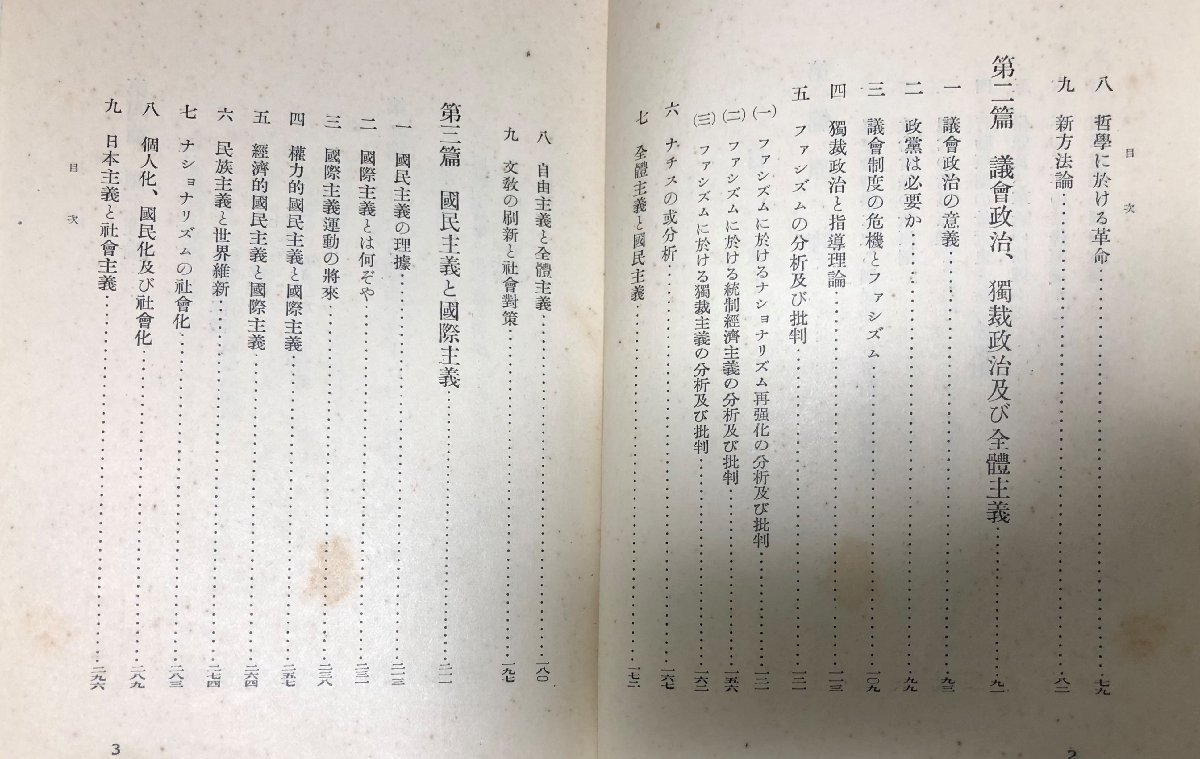 目次
八 哲學に於ける革命……七九
九 新方法論……八二
第二篇 議會政治、獨裁政治及び全體主義……九一
一 議會政治の意義……九三
二 政黨は必要か……九九
三 議會制度の危機とファシズム……一〇九
四 獨裁政治と指導理論……一一三
五 ファシズムの分析及び批判……一二一
(一) ファシズムに於けるナショナリズム再强化の分析及び批判……一二一
(二) ファシズムに於ける統制經濟主義の分析及び批判……一五六
(三) ファシズムに於ける獨裁主義の分析及び批判……一六二
六 ナチスの或分析……一六七
七 全體主義と國民主義……一七二
2
八 自由主義と全體主義……一八〇
九 文教の刷新と社會對策……一九七
第三篇 國民主義と國際主義……二一一
一 國民主義の理據……二一三
二 國際主義とは何ぞや……二三二
三 國際主義運動の將來……二三八
四 權力的國民主義と國際主義……二五七
五 經濟的國民主義と國際主義……二六四
六 民族主義と世界維新……二七四
七 ナショナリズムの社會化……二八三
八 個人化、國民化及び社會化……二八九
九 日本主義と社會主義……二九六
目次
3